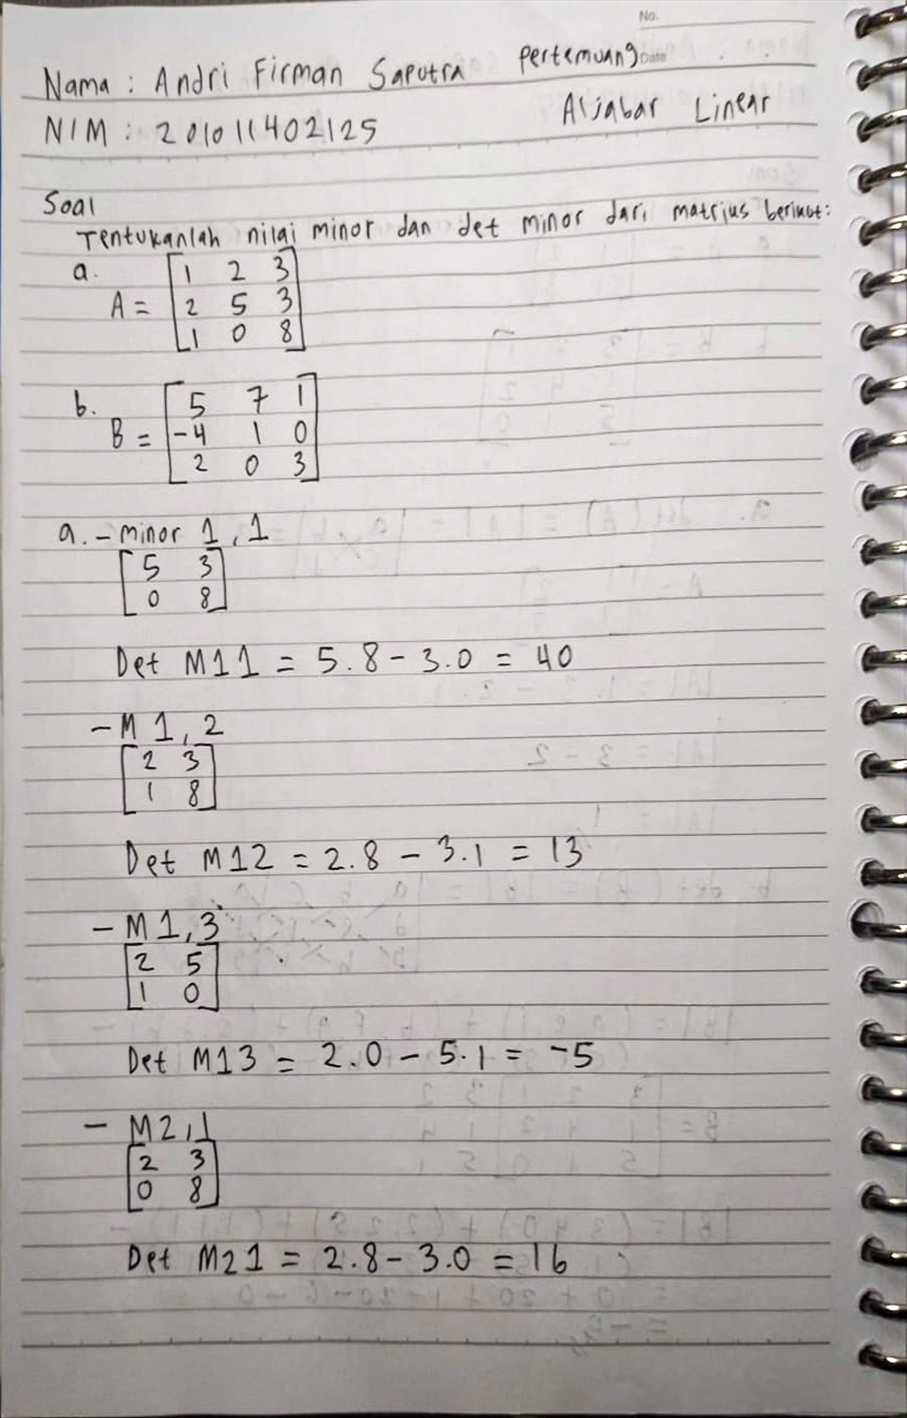 No.
Date
Nama : Andri Firman Saputra Pertemuan 9
NIM : 201011402125 Aljabar Linear
Soal
Tentukanlah nilai minor dan det minor dari matriks berikut:
a.
A = [1 2 3
2 5 3
1 0 8]
b.
B = [5 7 1
-4 1 0
2 0 3]
a. - minor 1,1
[5 3
0 8]
Det M11 = 5.8 - 3.0 = 40
- M 1,2
[2 3
1 8]
Det M12 = 2.8 - 3.1 = 13
- M 1,3
[2 5
1 0]
Det M13 = 2.0 - 5.1 = -5
- M2,1
[2 3
0 8]
Det M21 = 2.8 - 3.0 = 16